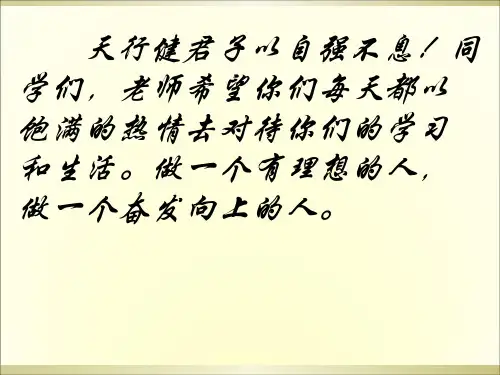 天行健君子以自强不息！同
学们，老师希望你们每天都以
饱满的热情去对待你们的学习
和生活。做一个有理想的人，
做一个奋发向上的人。